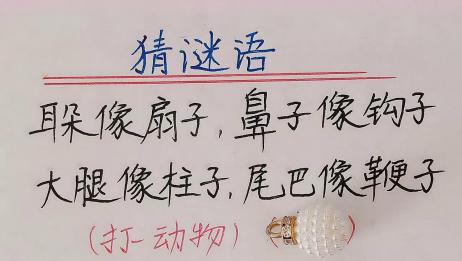 猜谜语
耳朵像扇子,鼻子像钩子
大腿像柱子,尾巴像鞭子
(打一动物) ( )